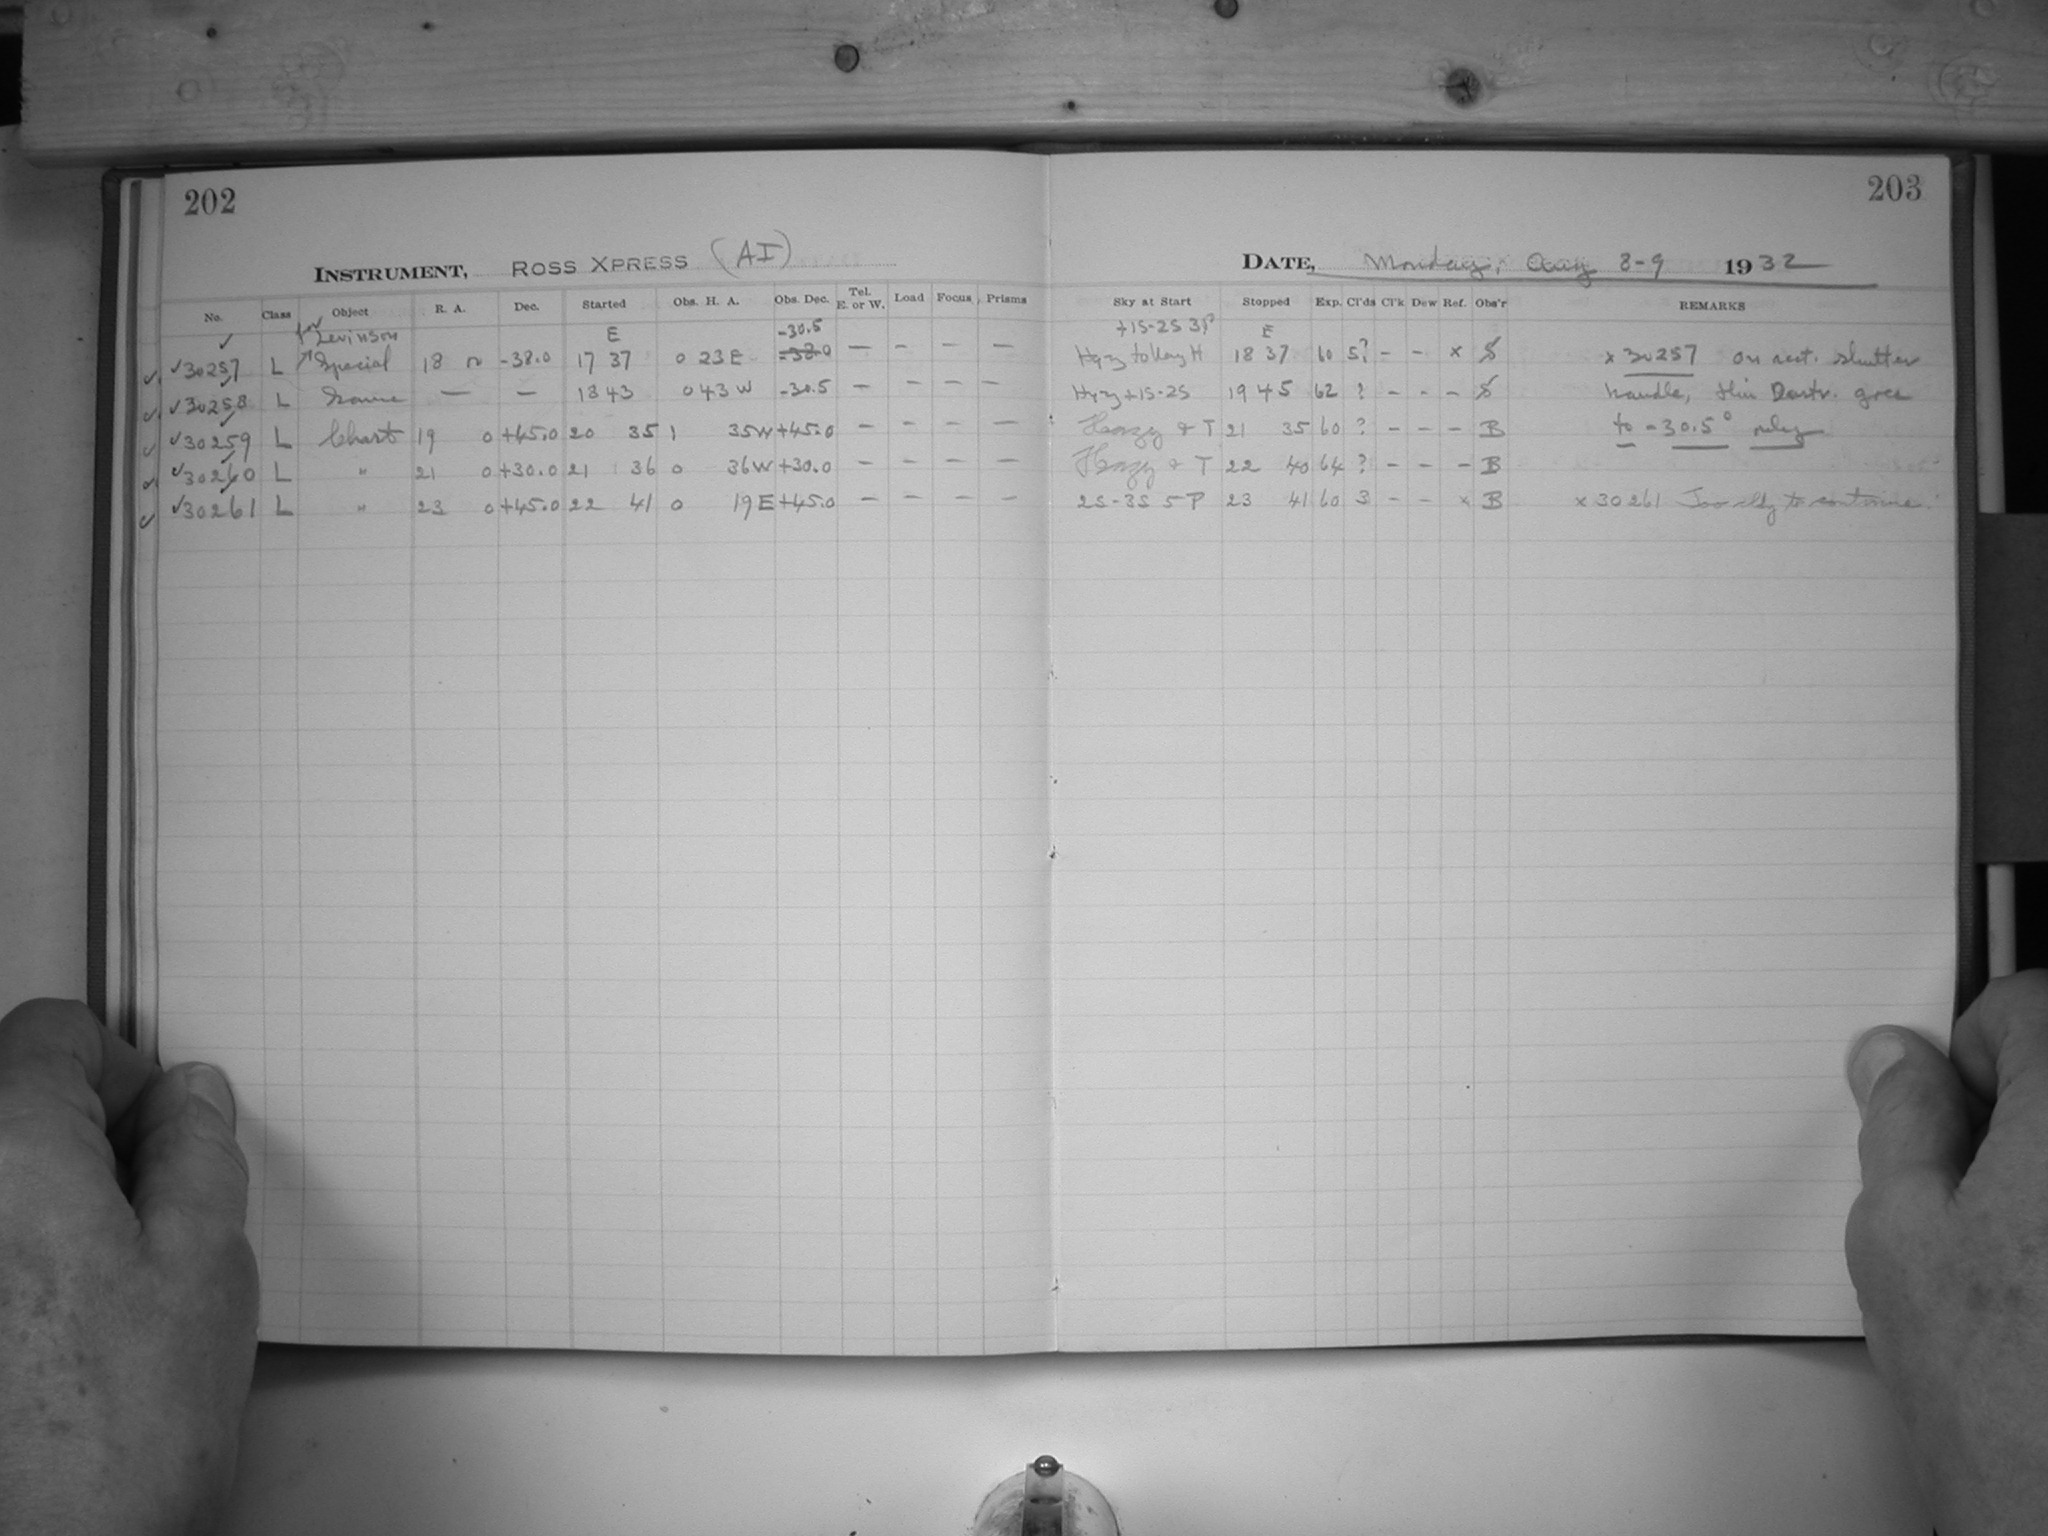 202
203
INSTRUMENT, ROSS XPRESS (AI)
DATE, Monday, Aug 8-9 1932
No. Class Object R. A. Dec. Started Obs. H. A. Obs. Dec. Tel. E. or W. Load Focus Prisms Sky at Start Stopped Exp. Cl'ds Cl'k Dew Ref. Obs'r REMARKS
for Levinson E -30.5 +1S-2S 3P E
✓30257 L Special 18 n -38.0 17 37 0 23 E -38.0 — — — — H 18 37 60 5? — — x S x 30257 On rest. shutter
✓30258 L Same — — 18 43 0 43 W -30.5 — — — — Hyzy +1S-2S 19 45 62 ? — — — S handle, this Dastr. goes
✓30259 L Chart 19 0 +45.0 20 35 1 35W +45.0 — — — — Hazy & T 21 35 60 ? — — — B to -30.5°
✓30260 L " 21 0 +30.0 21 36 0 36W +30.0 — — — — Hazy & T 22 40 64 ? — — — B
✓30261 L " 23 0 +45.0 22 41 0 19E +45.0 — — — — 2S-3S 5P 23 41 60 3 — — x B x 30261 Too cldy to continue.